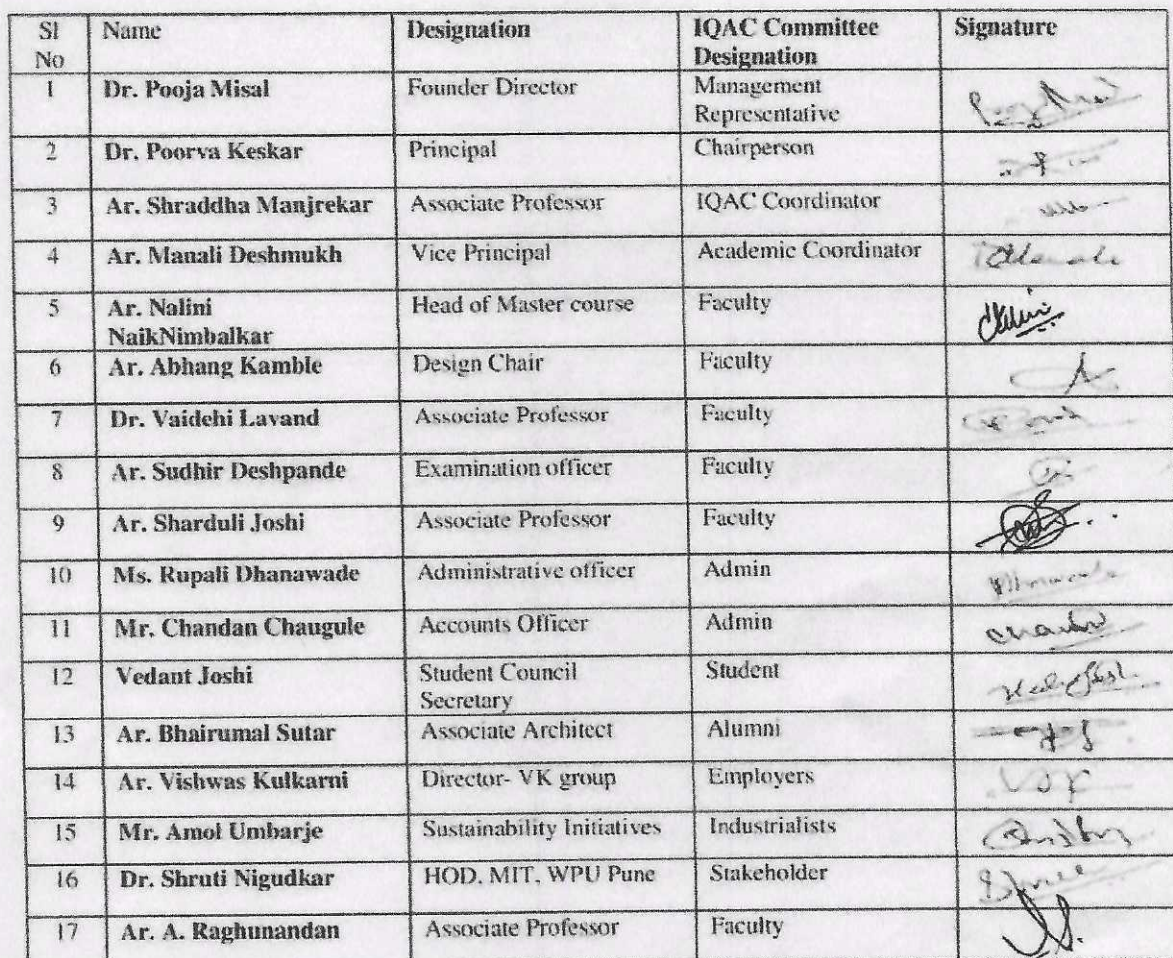 Sl No | Name | Designation | IQAC Committee Designation | Signature
1 | Dr. Pooja Misal | Founder Director | Management Representative
2 | Dr. Poorva Keskar | Principal | Chairperson
3 | Ar. Shraddha Manjrekar | Associate Professor | IQAC Coordinator
4 | Ar. Manali Deshmukh | Vice Principal | Academic Coordinator
5 | Ar. Nalini NaikNimbalkar | Head of Master course | Faculty
6 | Ar. Abhang Kamble | Design Chair | Faculty
7 | Dr. Vaidehi Lavand | Associate Professor | Faculty
8 | Ar. Sudhir Deshpande | Examination officer | Faculty
9 | Ar. Sharduli Joshi | Associate Professor | Faculty
10 | Ms. Rupali Dhanawade | Administrative officer | Admin
11 | Mr. Chandan Chaugule | Accounts Officer | Admin
12 | Vedant Joshi | Student Council Secretary | Student
13 | Ar. Bhairumal Sutar | Associate Architect | Alumni
14 | Ar. Vishwas Kulkarni | Director- VK group | Employers
15 | Mr. Amol Umbarje | Sustainability Initiatives | Industrialists
16 | Dr. Shruti Nigudkar | HOD, MIT, WPU Pune | Stakeholder
17 | Ar. A. Raghunandan | Associate Professor | Faculty